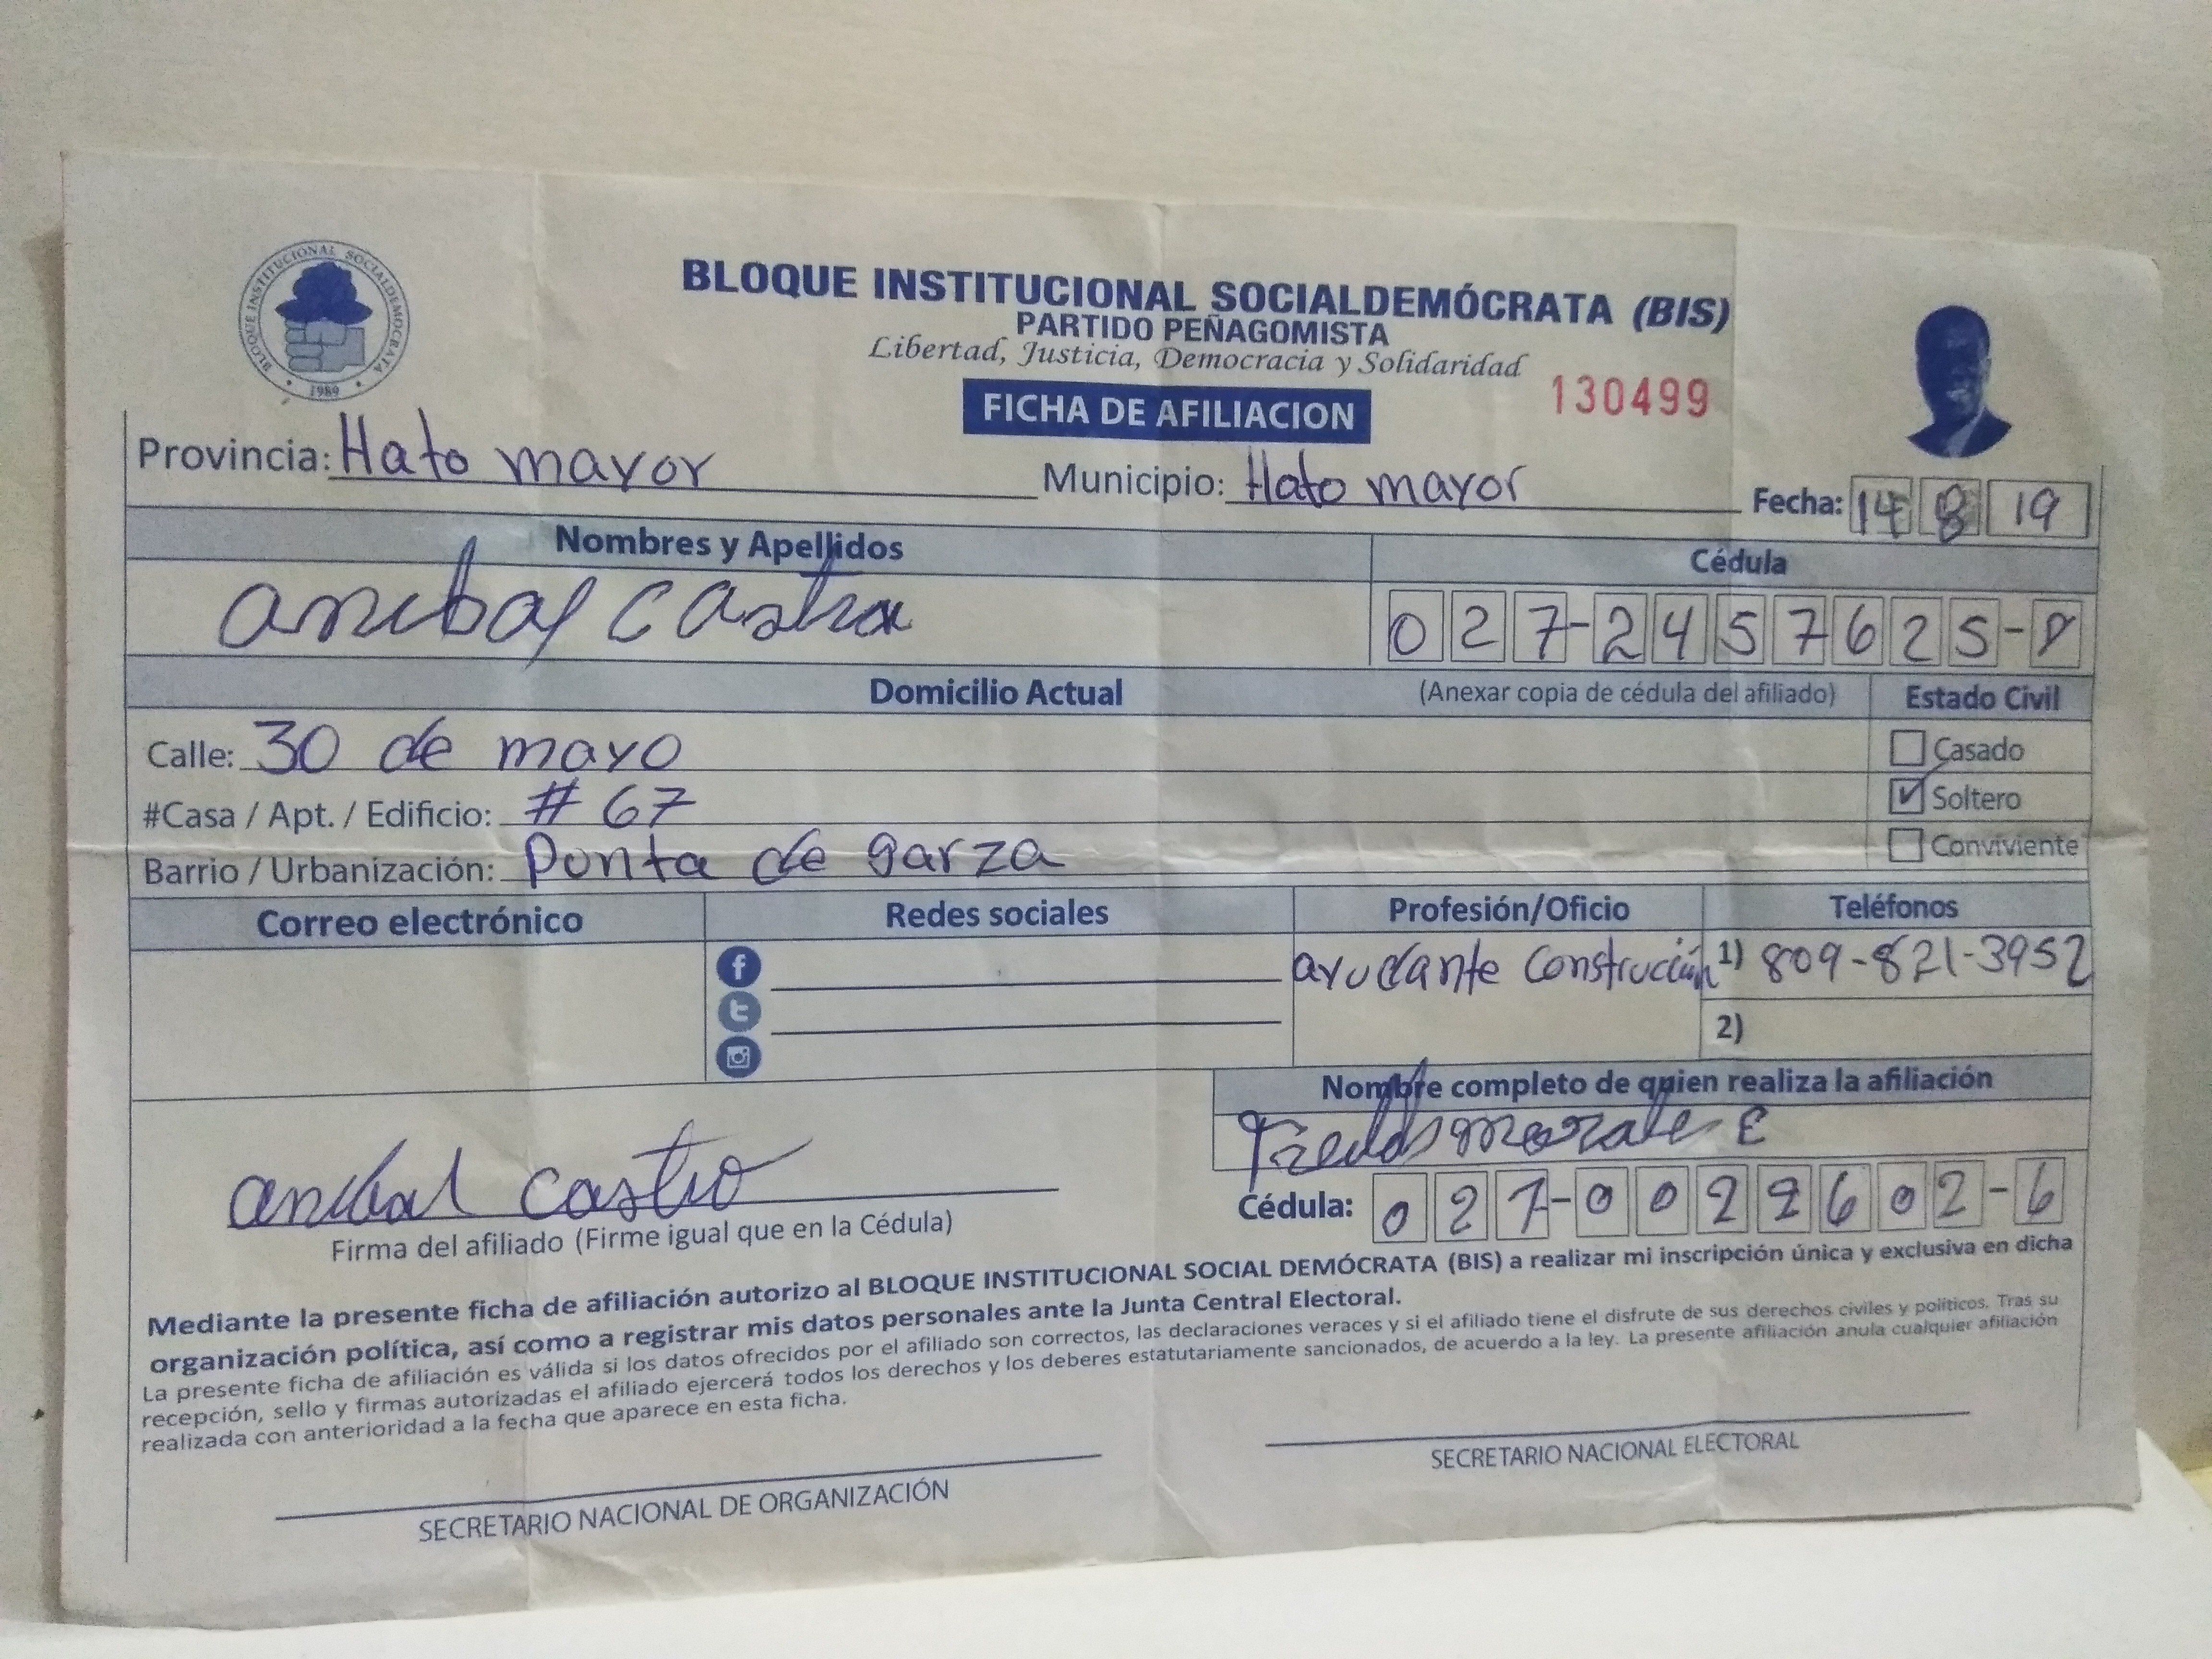 BLOQUE INSTITUCIONAL SOCIALDEMOCRATA
1989
BLOQUE INSTITUCIONAL SOCIALDEMÓCRATA (BIS)
PARTIDO PEÑAGOMISTA
Libertad, Justicia, Democracia y Solidaridad
FICHA DE AFILIACION
130499
Provincia: Hato mayor Municipio: Hato mayor Fecha: 14 8 19
Nombres y Apellidos Cédula
anibal Castro 027-2457625-8
Domicilio Actual (Anexar copia de cédula del afiliado) Estado Civil
Calle: 30 de mayo Casado
#Casa / Apt. / Edificio: # 67 Soltero
Barrio / Urbanización: Punta de garza Conviviente
Correo electrónico Redes sociales Profesión/Oficio Teléfonos
ayudante Construcción 1) 809-821-3952
2)
Nombre completo de quien realiza la afiliación
morales E
anibal castro
Cédula: 027-0029602-6
Firma del afiliado (Firme igual que en la Cédula)
Mediante la presente ficha de afiliación autorizo al BLOQUE INSTITUCIONAL SOCIAL DEMÓCRATA (BIS) a realizar mi inscripción única y exclusiva en dicha
organización política, así como a registrar mis datos personales ante la Junta Central Electoral.
La presente ficha de afiliación es válida si los datos ofrecidos por el afiliado son correctos, las declaraciones veraces y si el afiliado tiene el disfrute de sus derechos civiles y políticos. Tras su
recepción, sello y firmas autorizadas el afiliado ejercerá todos los derechos y los deberes estatutariamente sancionados, de acuerdo a la ley. La presente afiliación anula cualquier afiliación
realizada con anterioridad a la fecha que aparece en esta ficha.
SECRETARIO NACIONAL DE ORGANIZACIÓN
SECRETARIO NACIONAL ELECTORAL